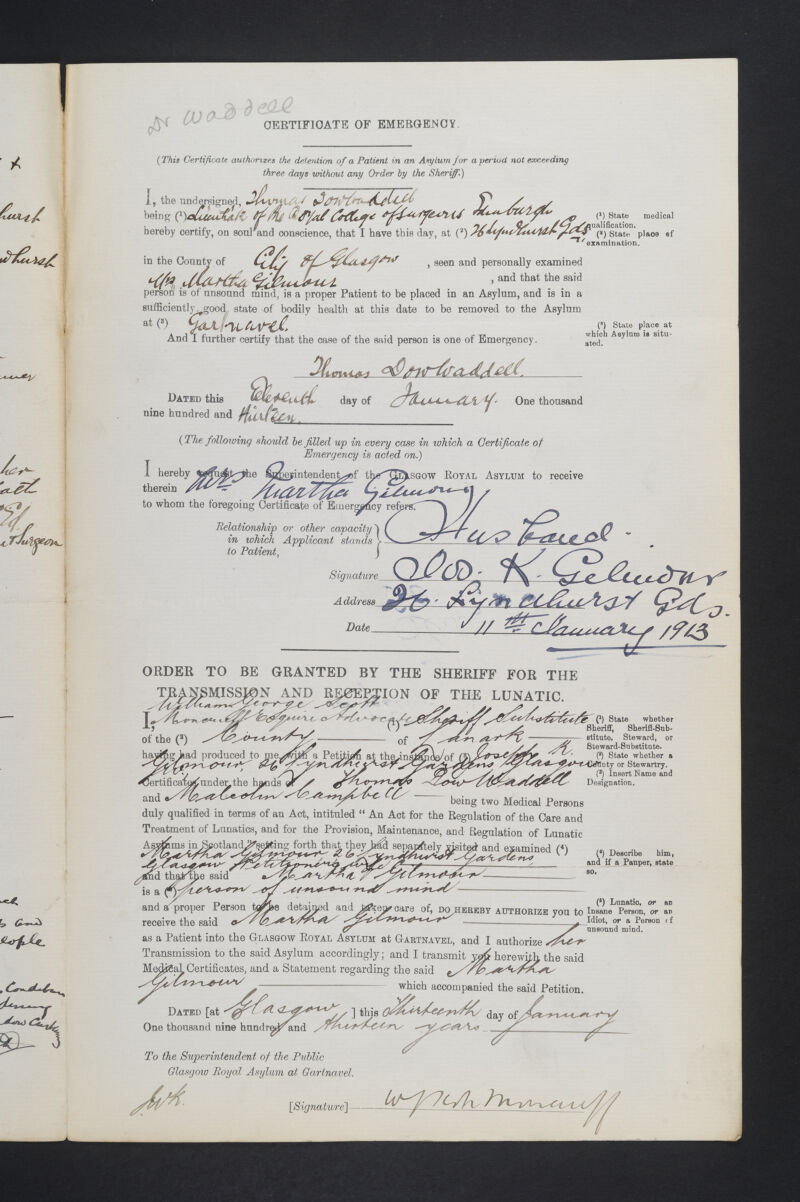 +
hurst
Dr Waddell
CERTIFICATE OF EMERGENCY.
(This Certificate authorizes the detention of a Patient in an Asylum for a period not exceeding
three days without any Order by the Sheriff.)
I, the undersigned, Thomas Dow Waddell
being (1) Licentiate of the Royal College of Surgeons Edinburgh
hereby certify, on soul and conscience, that I have this day, at (2) 26 Lyndhurst Gds
in the County of City of Glasgow , seen and personally examined
Mrs Martha Gilmour , and that the said
person is of unsound mind, is a proper Patient to be placed in an Asylum, and is in a
sufficiently good state of bodily health at this date to be removed to the Asylum
at (3) Gartnavel.
And I further certify that the case of the said person is one of Emergency.
Thomas Dow Waddell.
DATED this Eleventh day of January. One thousand
nine hundred and thirteen.
(1) State medical
qualification.
(2) State place of
examination.
(3) State place at
which Asylum is situ-
ated.
(The following should be filled up in every case in which a Certificate of
Emergency is acted on.)
I hereby request the Superintendent of the GLASGOW ROYAL ASYLUM to receive
therein Mrs Martha Gilmour
to whom the foregoing Certificate of Emergency refers.
Relationship or other capacity
in which Applicant stands
to Patient, } Husband.
Signature Jos. K. Gilmour
Address 26. Lyndhurst Gds.
Date 11th January 1913
ORDER TO BE GRANTED BY THE SHERIFF FOR THE
TRANSMISSION AND RECEPTION OF THE LUNATIC.
William George Scott
I, Moncrieff Esquire Advocate (1) Sheriff Substitute
of the (2) County of Lanark
having had produced to me with a Petition at the instance of (3) Joseph K.
Gilmour, 26 Lyndhurst Gardens Glasgow
Certificates under the hands of Thomas Dow Waddell
and Malcolm Campbell being two Medical Persons
duly qualified in terms of an Act, intituled "An Act for the Regulation of the Care and
Treatment of Lunatics, and for the Provision, Maintenance, and Regulation of Lunatic
Asylums in Scotland," setting forth that they had separately visited and examined (4)
Martha Gilmour 26 Lyndhurst Gardens
Glasgow Petitioner's wife
and that the said Martha Gilmour
is a (5) person of unsound mind
and a proper Person to be detained and taken care of, DO HEREBY AUTHORIZE you to
receive the said Martha Gilmour
as a Patient into the GLASGOW ROYAL ASYLUM at GARTNAVEL, and I authorize her
Transmission to the said Asylum accordingly; and I transmit you herewith the said
Medical Certificates, and a Statement regarding the said Martha
Gilmour which accompanied the said Petition.
DATED [at Glasgow ] this Thirteenth day of January
One thousand nine hundred and thirteen years
(1) State whether
Sheriff, Sheriff-Sub-
stitute, Steward, or
Steward-Substitute.
(2) State whether a
County or Stewartry.
(3) Insert Name and
Designation.
(4) Describe him,
and if a Pauper, state
so.
(5) Lunatic, or an
Insane Person, or an
Idiot, or a Person of
unsound mind.
To the Superintendent of the Public
Glasgow Royal Asylum at Gartnavel.
[Signature]
her
Surgeon
and
people